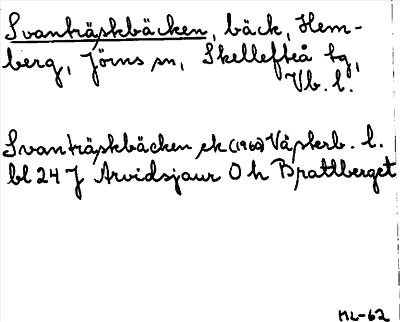 Svanträskbäcken, bäck, Hem-
berg, Jörns sn, Skellefteå tg,
Vb. l.
Svanträskbäcken ek (1960) Västerb. l.
bl 24 J Arvidsjaur O h Brattberget
ML-62